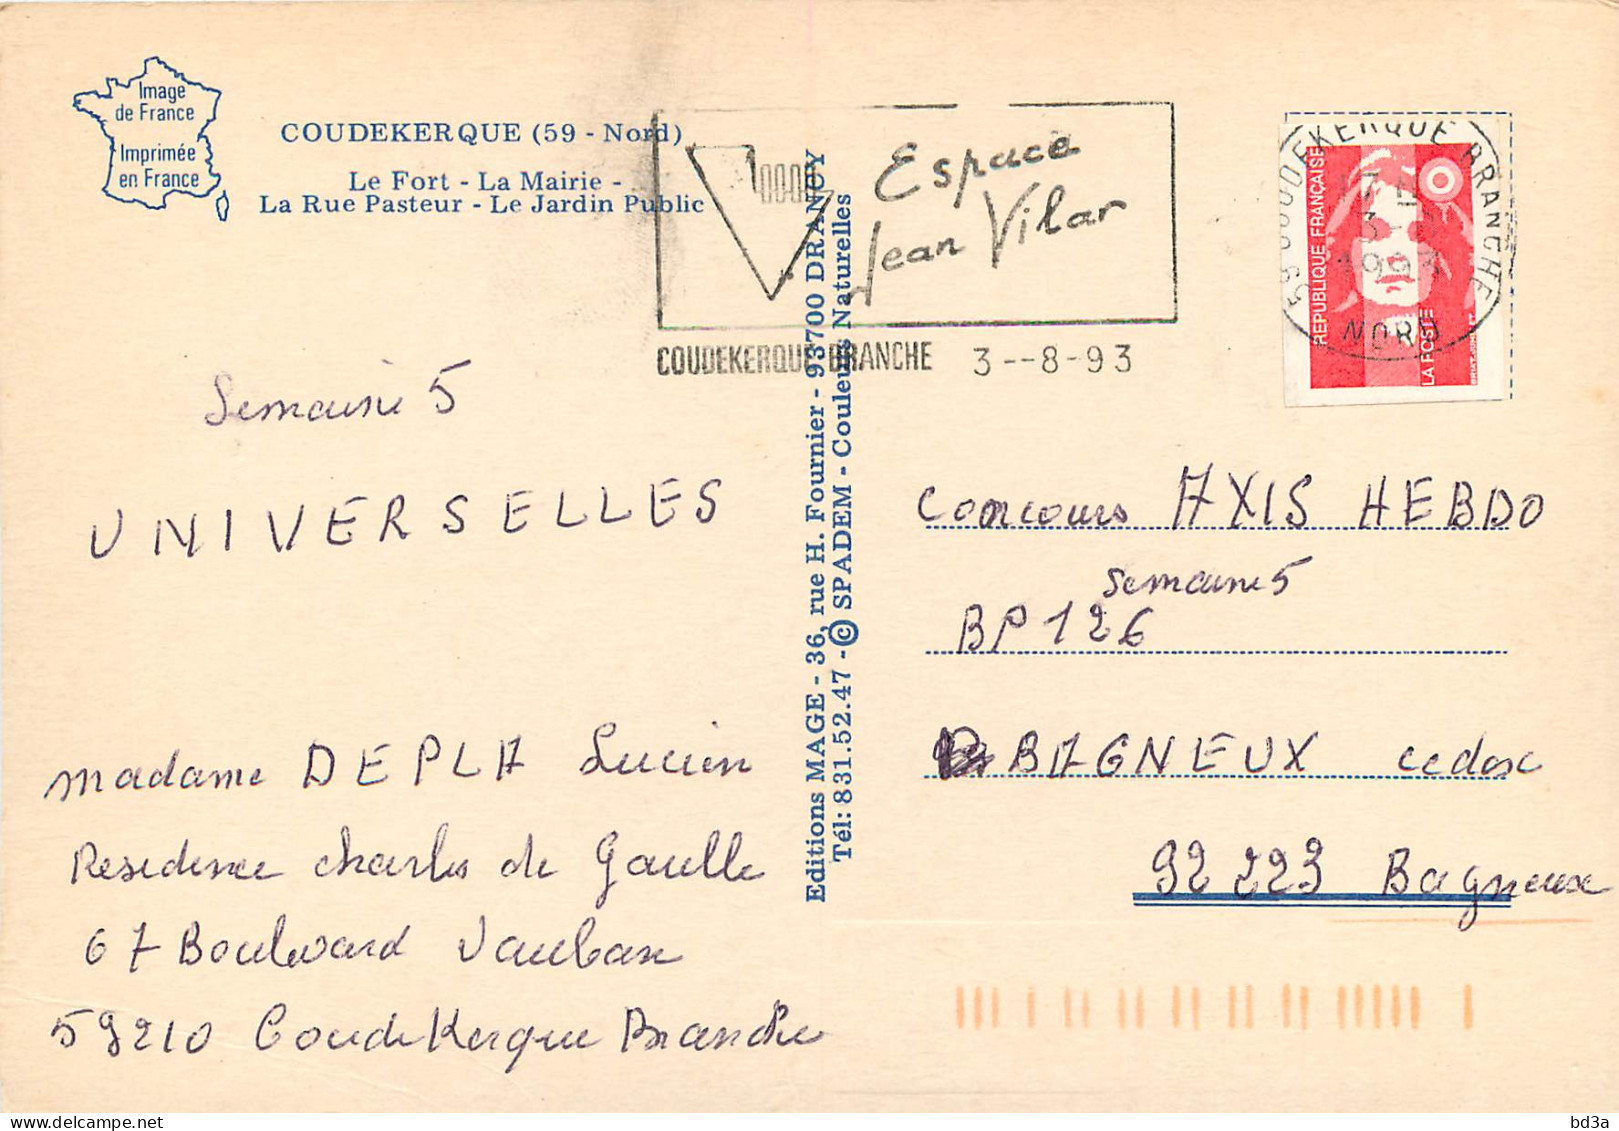 Image
de France
Imprimée
en France
COUDEKERQUE (59 - Nord)
Le Fort - La Mairie -
La Rue Pasteur - Le Jardin Public
Espace
Jean Vilar
COUDEKERQUE-BRANCHE 3--8-93
59 COUDEKERQUE BRANCHE
3-8
1993
NORD
RÉPUBLIQUE FRANÇAISE
LA POSTE
Semaine 5
UNIVERSELLES
Madame DEPLA Lucien
Residence charles de Gaulle
67 Boulevard Vauban
59210 CoudeKerque Branche
Editions MAGE - 36, rue H. Fournier - 93700 DRANCY
Tél: 831.52.47 - © SPADEM - Couleurs Naturelles
Concours AXIS HEBDO
Semaine 5
BP 126
BAGNEUX cedex
92 223 Bagneux
bd3a